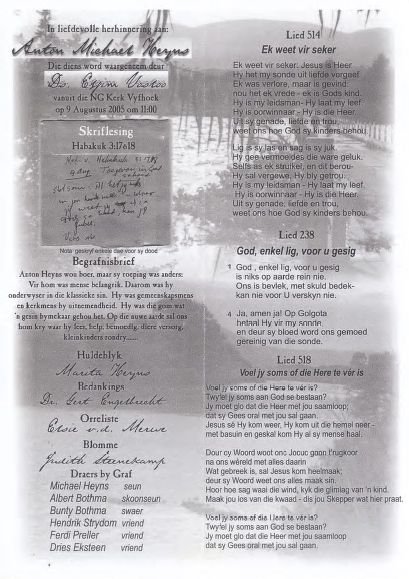 In liefdevolle herhinnering aan:
Anton Michael Heyns
Die diens word waargeneem deur
Ds.
vanuit die NG Kerk Vyfhoek
op 9 Augustus 2005 om 11:00
Skriflesing
Habakuk 3:17e18
Nota geskryf enkele dae voor sy dood
Begrafnisbrief
Anton Heyns wou boer, maar sy toeping was anders:
Vir hom was mense belangrik. Daarom was hy
onderwyser in die klassieke sin. Hy was gemeenskapsmens
en kerkmens by uitnemendheid. Hy was die gom wat
'n gesin bymekaar gehou het. Op die nuwe aarde sal ons
hom kry waar hy leer, help, bemoedig, diere versorg,
kleinkinders rondry......
Huldeblyk
Mareta Heyns
Bedankings
Dr. Gert Engelbrecht
Orreliste
Elsie v.d. Merwe
Blomme
Judith Steenekamp
Draers by Graf
Michael Heyns seun
Albert Bothma skoonseun
Bunty Bothma swaer
Hendrik Strydom vriend
Ferdi Preller vriend
Dries Eksteen vriend
Lied 514
Ek weet vir seker
Ek weet vir seker: Jesus is Heer
Hy het my sonde uit liefde vergeef
Ek was verlore, maar is gevind:
nou het ek vrede - ek is Gods kind.
Hy is my leidsman - Hy laat my leef.
Hy is oorwinnaar - Hy is die Heer.
Uit sy genade, liefde en trou,
weet ons hoe God sy kinders behou.
Lig is sy las en sag is sy juk,
Hy gee vermoeides die ware geluk.
Selfs as ek struikel, en dit berou-
Hy sal vergewe, Hy bly getrou.
Hy is my leidsman - Hy laat my leef,
Hy is oorwinnaar - Hy is die Heer.
Uit sy genade, liefde en trou,
weet ons hoe God sy kinders behou.
Lied 238
God, enkel lig, voor u gesig
1 God , enkel lig, voor u gesig
is niks op aarde rein nie.
Ons is bevlek, met skuld bedek-
kan nie voor U verskyn nie.
4 Ja, amen ja! Op Golgota
betaal Hy vir my sonde,
en deur sy bloed word ons gemoed
gereinig van die sonde.
Lied 518
Voel jy soms of die Here te vér is
Voel jy soms of die Here te vér is?
Twyfel jy soms aan God se bestaan?
Jy moet glo dat die Heer met jou saamloop;
dat sy Gees oral met jou sal gaan.
Jesus sê Hy kom weer, Hy kom uit die hemel neer -
met basuin en geskal kom Hy al sy mense haal.
Dour oy Woord woot ons Jocuc goop t'rugkoor
na ons wêreld met alles daarin
Wat gebreek is, sal Jesus kom heelmaak;
deur sy Woord weet ons alles maak sin.
Hoor hoe sag waai die wind, kyk die glimlag van 'n kind.
Maak jou los van die kwaad - dis jou Skepper wat hier praat.
Voel jy soms of die Here te vér is?
Twyfel jy soms aan God se bestaan?
Jy moet glo dat die Heer met jou saamloop
dat sy Gees oral met jou sal gaan.